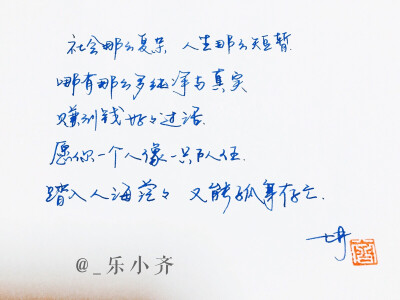 社会那么复杂 人生那么短暂
哪有那么多纯净与真实
只赚到钱好々过活.
愿你一个人像一只队伍.
踏入人海茫々 又能孤筝存亡.
@_乐小齐